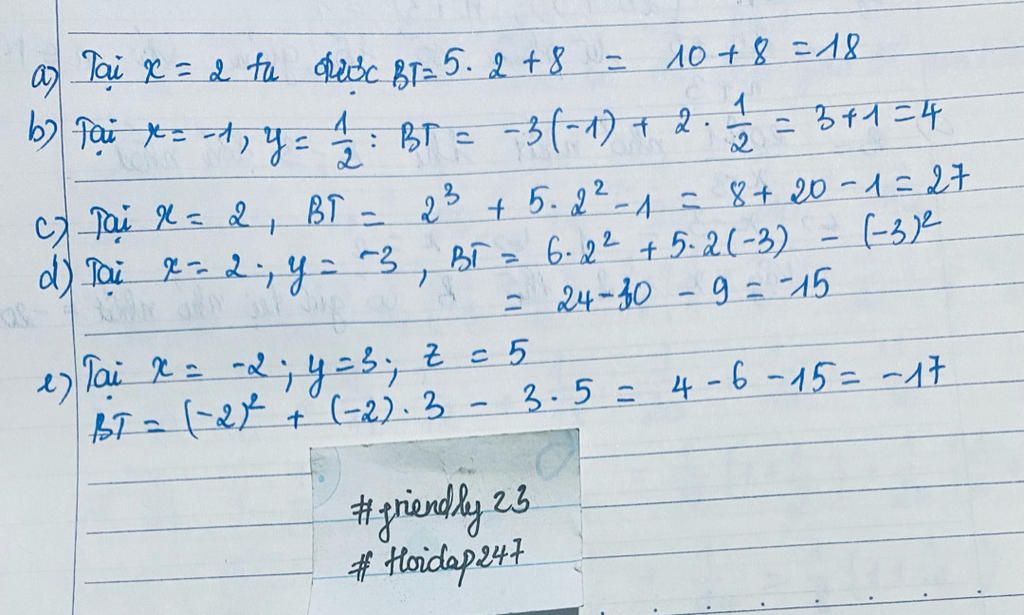 a) Tại x = 2 ta được BT = 5. 2 + 8 = 10 + 8 = 18
b) Tại x = -1, y = 1/2 : BT = -3(-1) + 2 . 1/2 = 3 + 1 = 4
c) Tại x = 2, BT = 2³ + 5. 2² - 1 = 8 + 20 - 1 = 27
d) Tại x = 2 ; y = -3, BT = 6. 2² + 5. 2(-3) - (-3)²
= 24 - 30 - 9 = -15
e) Tại x = -2 ; y = 3 ; z = 5
BT = (-2)² + (-2) . 3 - 3 . 5 = 4 - 6 - 15 = -17
#friendly 23
# Hoidap247